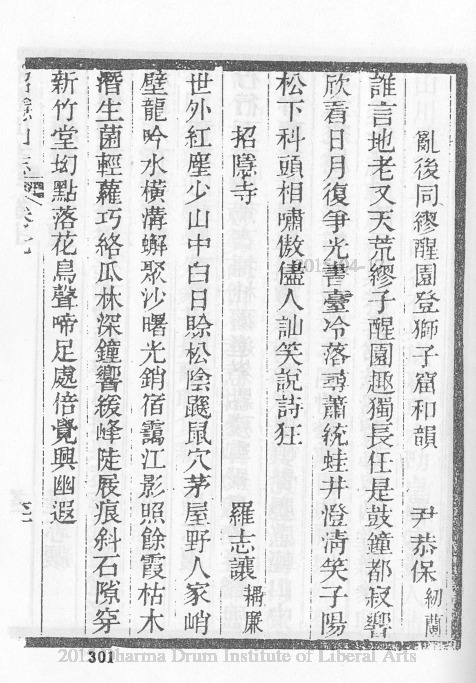 亂後同繆醒園登獅子窟和韻 尹恭保 紉蘭
誰言地老又天荒繆子醒園趣獨長任是鼓鐘都寂響
欣看日月復爭光書臺冷落尋蕭統蛙井澄淸笑子陽
松下科頭相嘯傲儘人訕笑說詩狂
招隱寺 羅志讓 耦廉
世外紅塵少山中白日賒松陰鼷鼠穴茅屋野人家峭
壁龍吟水橫溝蠏聚沙曙光銷宿靄江影照餘霞枯木
潛生菌輕蘿巧絡瓜林深鐘響緩峰陡屐痕斜石隙穿
新竹堂坳點落花鳥聲啼足處倍覺興幽遐
招隱山志 卷七
301
2015 Dharma Drum Institute of Liberal Arts